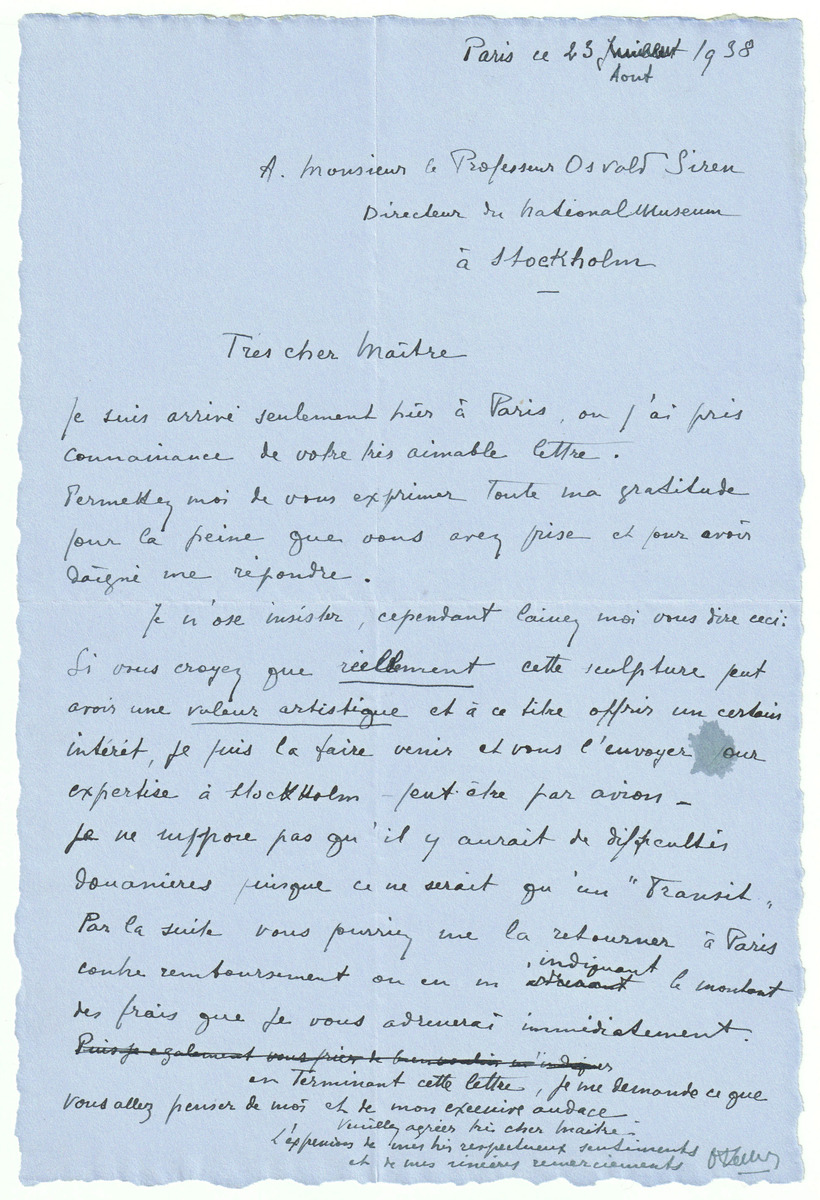 Paris ce 23 Juillet 1938
Aout
A. Monsieur le Professeur Osvald Siren
Directeur du National Museum
à Stockholm
Tres cher Maître
Je suis arrivé seulement hier à Paris, ou j'ai pris
connaissance de votre très aimable lettre.
Permettez moi de vous exprimer toute ma gratitude
pour la peine que vous avez prise et pour avoir
daigné me répondre.
Je n'ose insister, cependant laissez moi vous dire ceci:
Si vous croyez que réellement cette sculpture peut
avoir une valeur artistique et à ce titre offrir un certain
intérêt, je puis la faire venir et vous l'envoyer pour
expertise à Stockholm - peut-être par avion -
Je ne suppose pas qu'il y aurait de difficultés
douanieres puisque ce ne serait qu'un "Transit"
Par la suite vous pourriez me la retourner à Paris
contre remboursement ou en m'indiquant le montant
des frais que je vous adresserai immédiatement.
Puis-je egalement vous prier de bien vouloir m'indiquer
en terminant cette lettre, je me demande ce que
vous allez penser de moi et de mon excessive audace
Veuillez agréer très cher Maitre -
L'expression de mes très respectueux sentiments
et de mes sincères remerciements